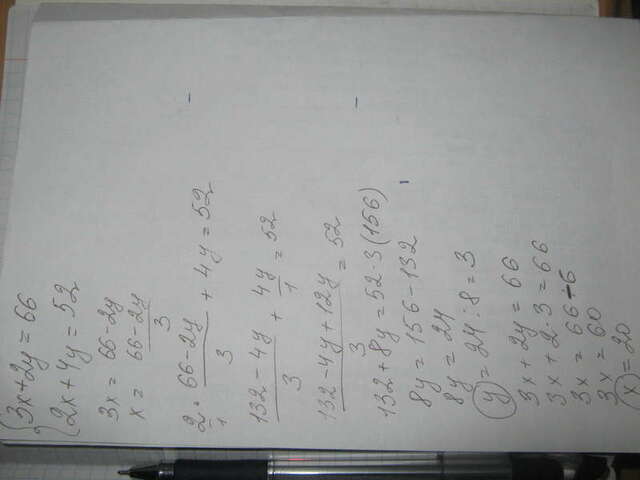 {3x+2y=66
{2x+4y=52
3x = 66-2y
x = 66-2y/3
2/1 · 66-2y/3 + 4y = 52
132-4y/3 + 4y/1 = 52
132-4y+12y/3 = 52
132+8y = 52·3 (156)
8y = 156-132
8y = 24
y = 24:8 = 3
3x + 2y = 66
3x + 2·3 = 66
3x = 66-6
3x = 60
x = 20